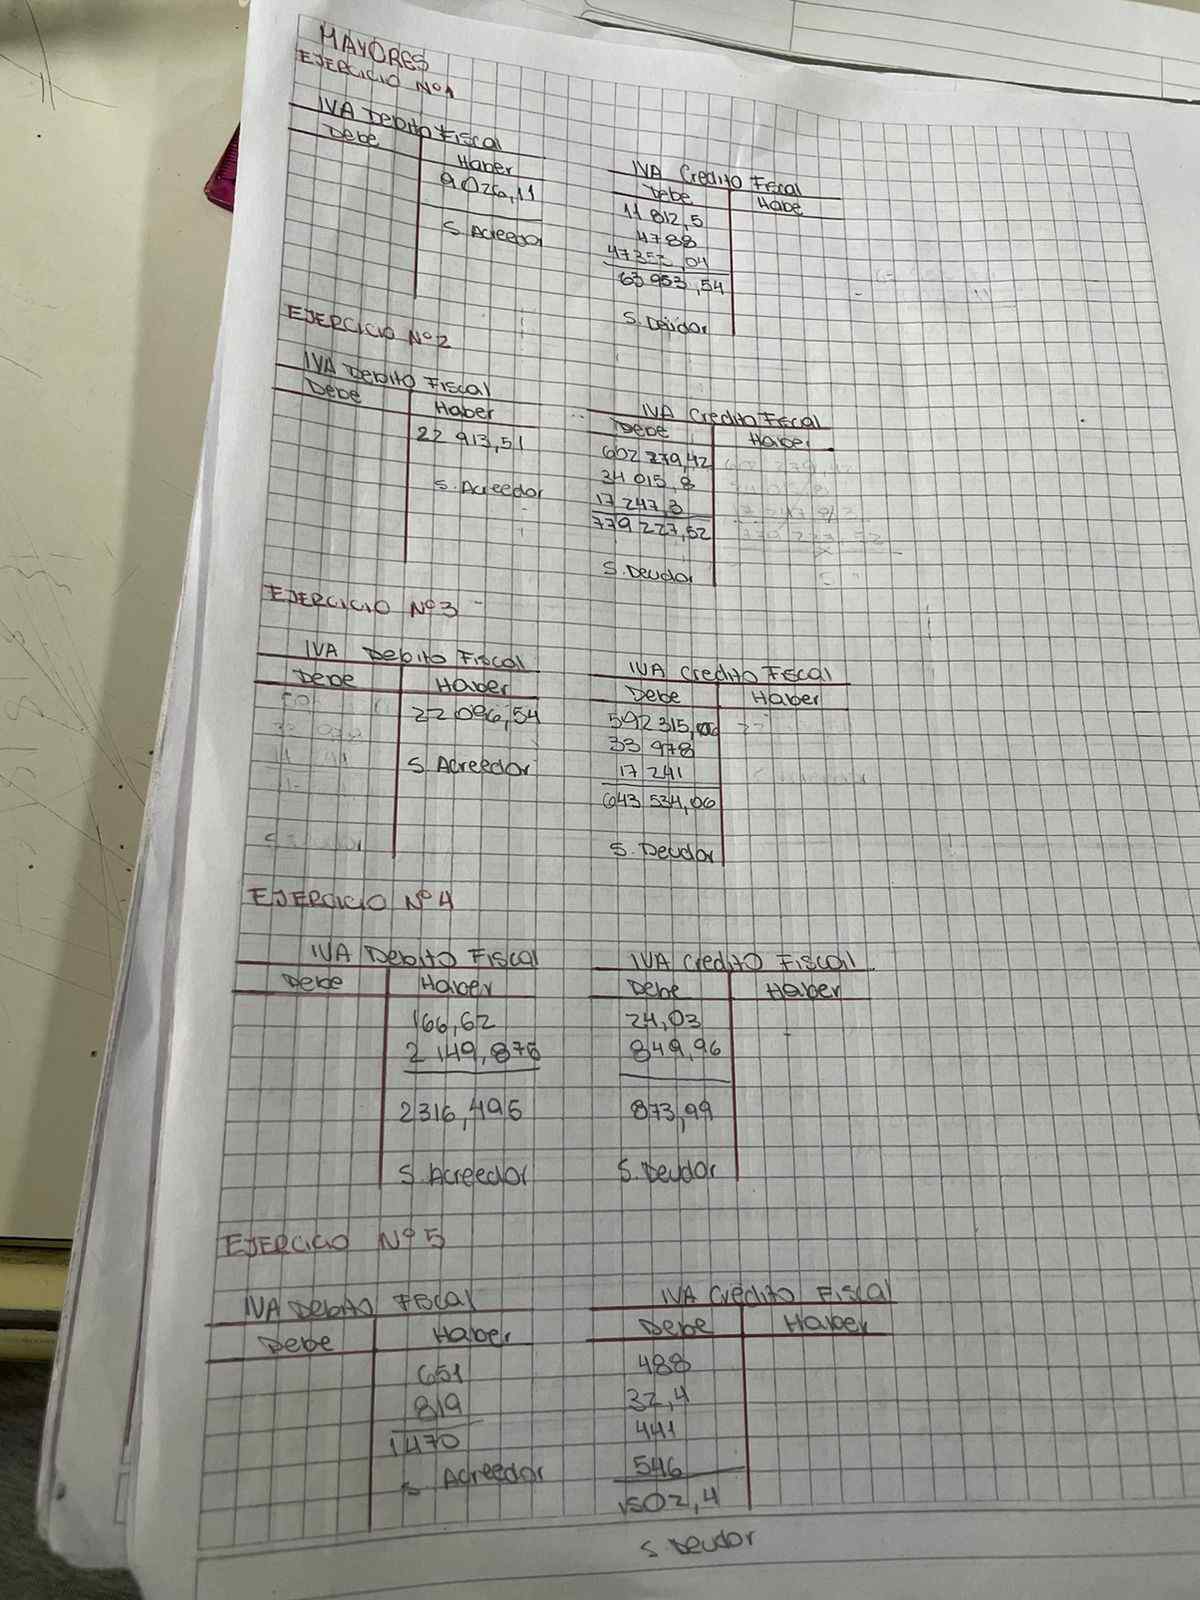 MAYORES
EJERCICIO Nº1
IVA Debito Fiscal
Debe Haber
9026,11
S. Acreedor
IVA Credito Fiscal
Debe Habe
11 812,5
4788
47353,04
63 953,54
S. Deudor
EJERCICIO Nº2
IVA Debito Fiscal
Debe Haber
22 913,51
S. Acreedor
IVA Credito Fiscal
Debe Haber
602 279,42
34 015,8
17 247,3
779 227,52
S. Deudor
EJERCICIO Nº3
IVA Debito Fiscal
Debe Haber
22 096,54
S Acreedor
IVA Credito Fiscal
Debe Haber
592 315,06
33 978
17 241
643 534,06
S. Deudor
EJERCICIO Nº4
IVA Debito Fiscal
Debe Haber
166,62
2 149,875
2316,495
S. Acreedor
IVA Credito Fiscal
Debe Haber
24,03
849,96
873,99
S. Deudor
EJERCICIO Nº5
IVA Debito Fiscal
Debe Haber
651
819
1470
S Acreedor
IVA Crédito Fiscal
Debe Haber
488
32,4
441
546
1502,4
S Deudor